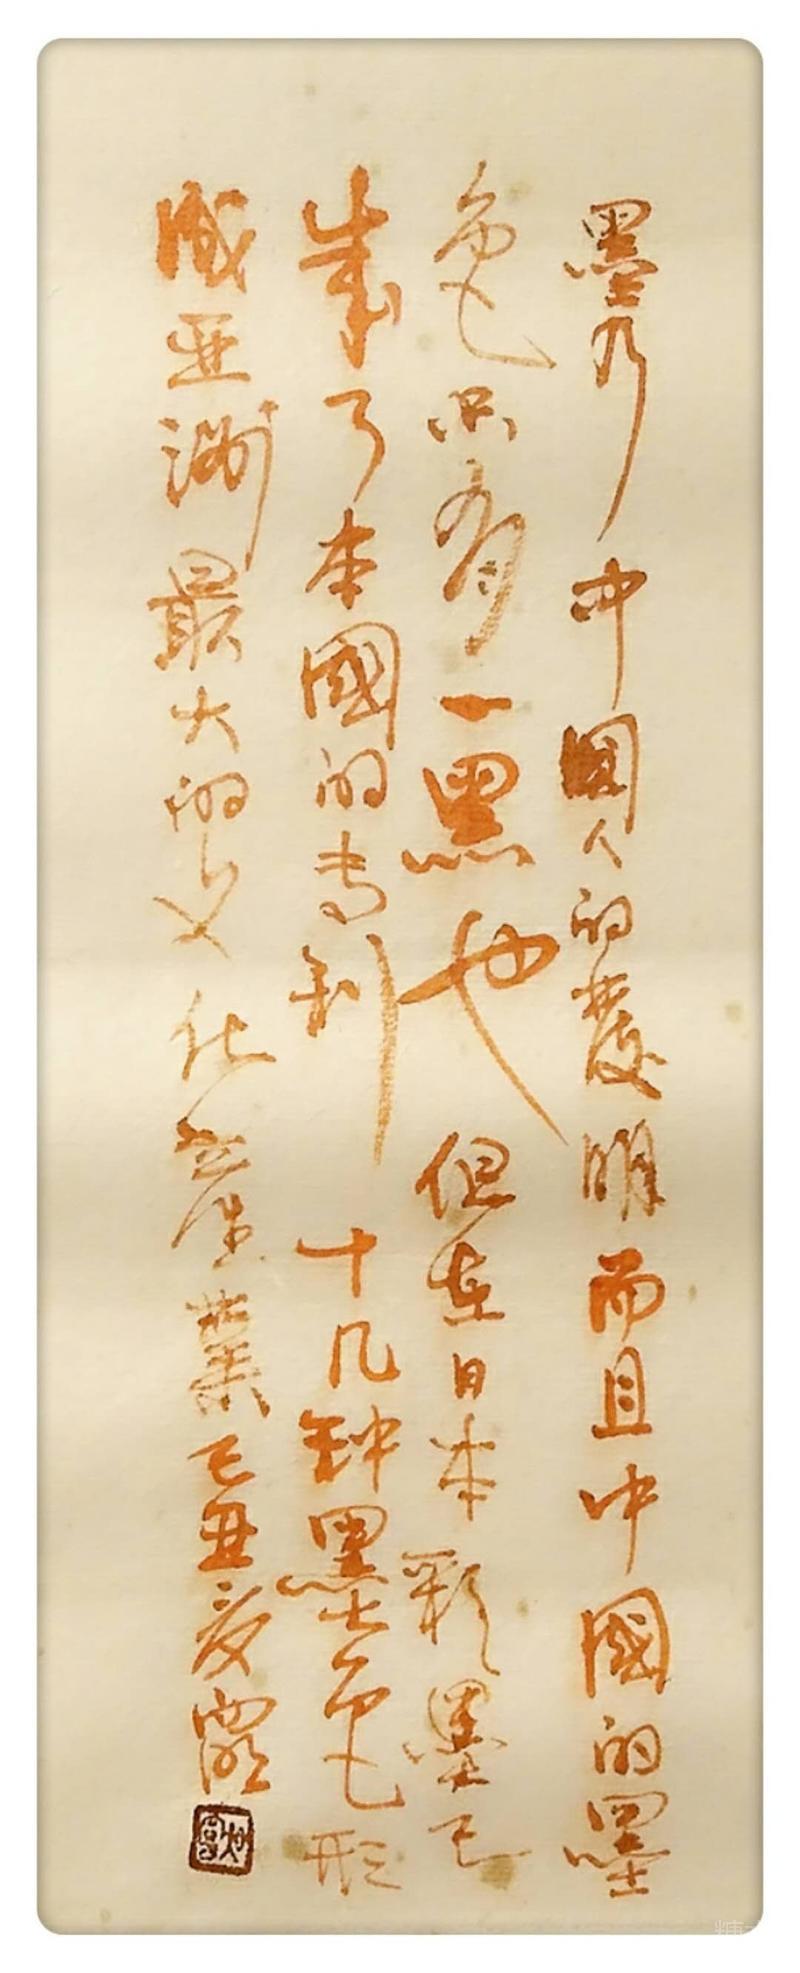 墨乃中國人的發明而且中國的墨
色只有一黑也但在日本彩墨已
成了本國的专利十几钟墨色形
成亚洲最大的文化產業己丑夏露